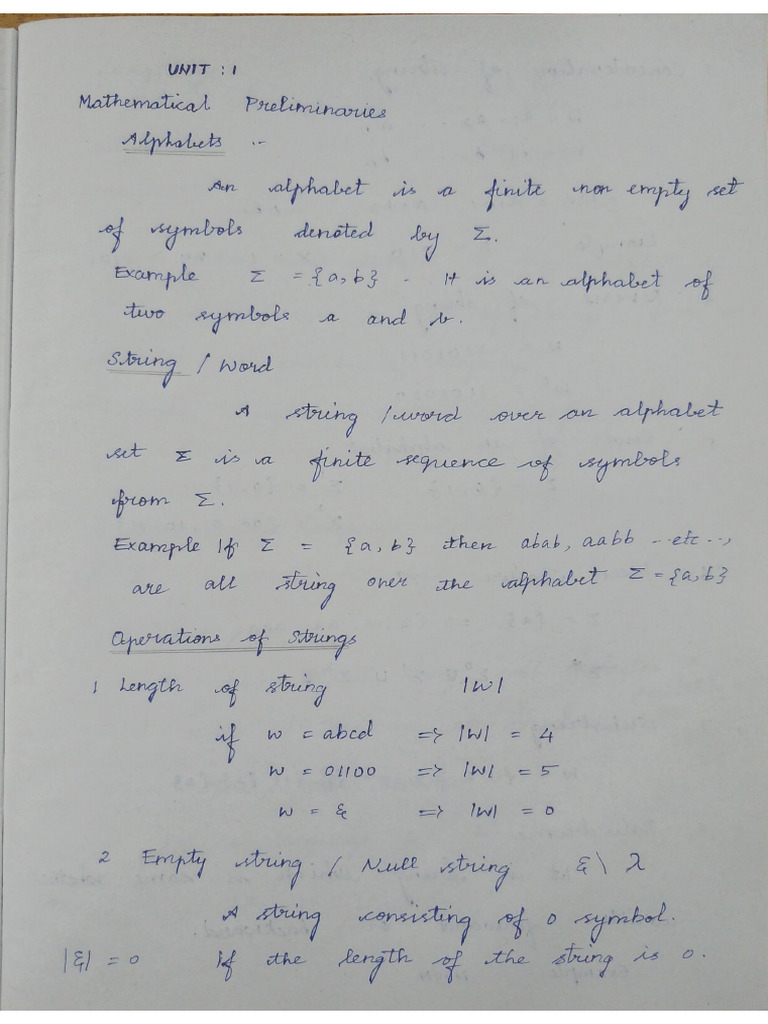 UNIT : 1
Mathematical Preliminaries
Alphabets :-
An alphabet is a finite non empty set
of symbols denoted by Σ.
Example Σ = {a, b} - It is an alphabet of
two symbols a and b.
String / Word
A string / word over an alphabet
set Σ is a finite sequence of symbols
from Σ.
Example If Σ = {a, b} then abab, aabb ... etc ...,
are all string over the alphabet Σ = {a, b}
Operations of Strings
1 Length of string |W|
if w = abcd => |W| = 4
w = 01100 => |W| = 5
w = ε => |W| = 0
2 Empty string / Null string ε \ λ
A string consisting of 0 symbol.
|ε| = 0 If the length of the string is 0.